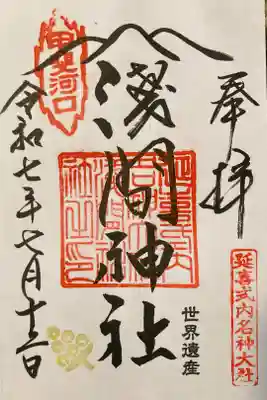 奉拝
延喜式内名神大社
淺間神社
世界遺産
甲斐河口
令和七年七月十三日